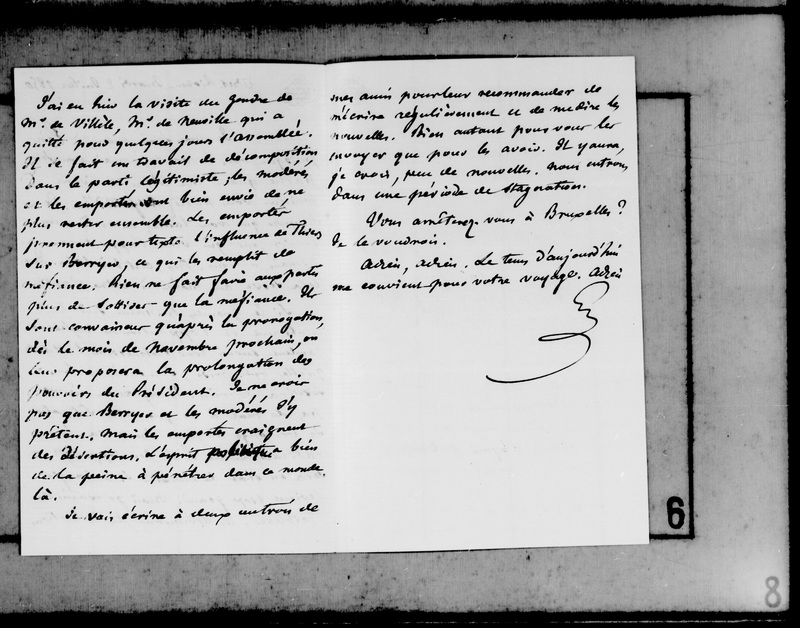 J'ai eu hier la visite du gendre de
Mr. de Villèle, Mr. de Neuville qui a
quitté pour quelques jours l'assemblée.
Il se fait un travail de décomposition
dans le parti légitimiste; les modérés
et les emportés ont bien envie de ne
plus rester ensemble. Les emportés
prennent pour texte l'influence de Thiers
sur Berryer, ce qui les remplit de
méfiance. Rien ne fait faire aux partis
plus de sottises que la méfiance. Ils
sont convaincus qu'après la prorogation,
dès le mois de Novembre prochain, on
leur proposera la prolongation des
pouvoirs du Président. Je ne crois
pas que Berryer et les modérés s'y
prêtent. Mais les emportés craignent
des désertions. L'esprit politique a bien
de la peine à pénétrer dans ce monde
là.
Je vais écrire à deux ou trois de
mes amis pour leur recommander de
m'écrire régulièrement et de me dire les
nouvelles. Bien autant pour vous les
envoyer que pour les avoir. Il y aura,
je crois, peu de nouvelles. Nous entrons
dans une période de stagnation.
Vous arrêterez vous à Bruxelles?
Je le voudrois.
Adieu, adieu. Le tems d'aujourd'hui
me convient pour votre voyage. Adieu
6
8